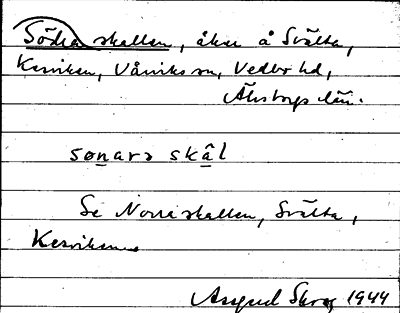 Södra skallen, åker å Svälta,
Kesviken, Vårviks sn, Vedbo hd,
Älvsborgs län.
sonars skål
Se Norra skallen, Svälta,
Kesviken
1944